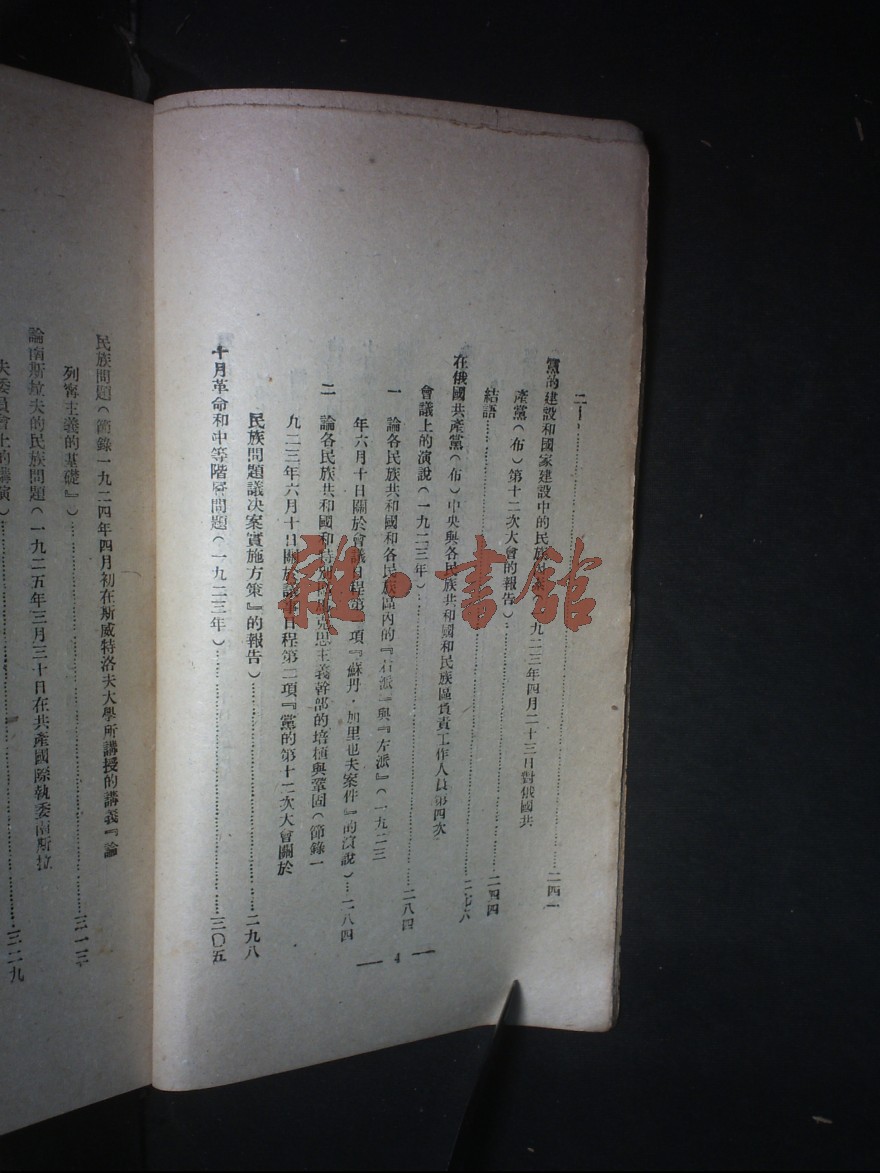 二十……二四一
黨的建設和國家建設中的民族因素(一九二三年四月二十三日對俄國共
產黨(布)第十二次大會的報告)……二四四
結語……二七六
在俄國共產黨(布)中央與各民族共和國和民族區負責工作人員第四次
會議上的演說(一九二三年)……二八四
一 論各民族共和國和各民族區內的『右派』與『左派』(一九二三
年六月十日關於會議日程第一項『蘇丹·加里也夫案件』的演說)……二八四
二 論各民族共和國和特別區馬克思主義幹部的培植與鞏固(節錄一
九二三年六月十日關於議事日程第二項『黨的第十二次大會關於
民族問題議決案實施方策』的報告)……二九八
十月革命和中等階層問題(一九二三年)……三〇五
— 4 —
民族問題(節錄一九二四年四月初在斯威特洛夫大學所講授的講義『論
列寧主義的基礎』)……三一三
論南斯拉夫的民族問題(一九二五年三月三十日在共產國際執委南斯拉
夫委員會上的講演)……三二九
雜·書館